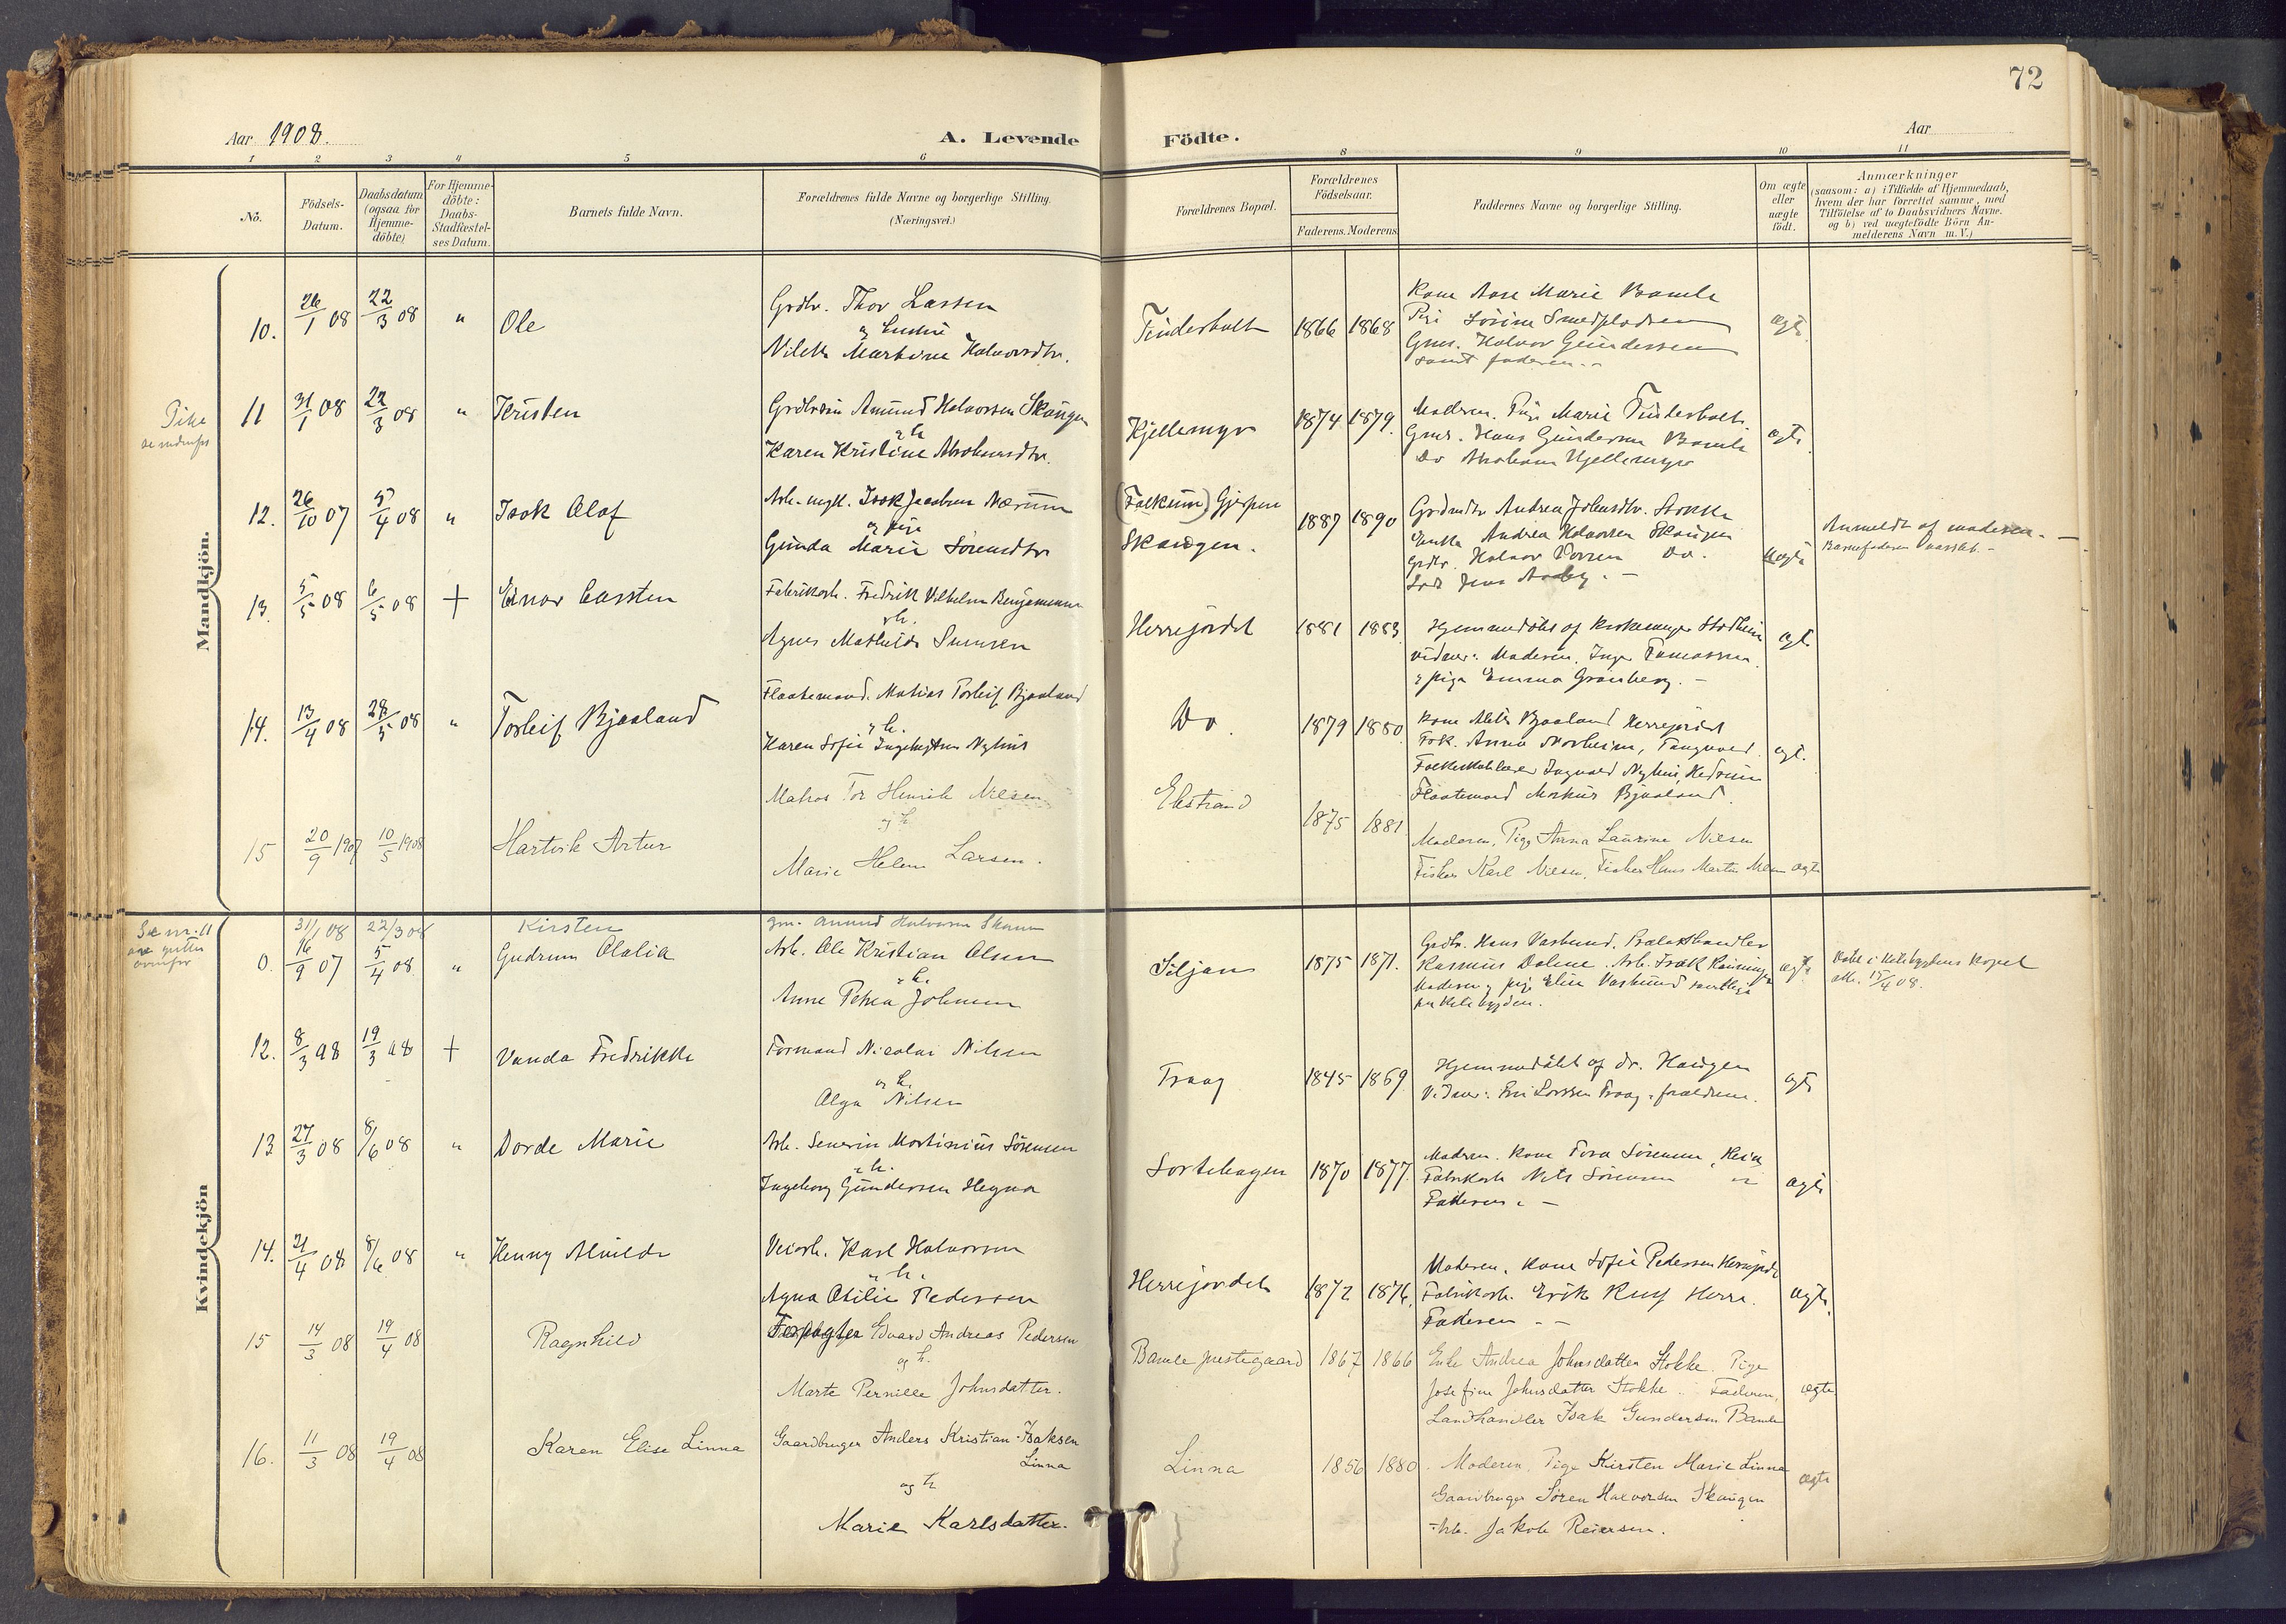 72
Aar 1908.
A. Levende
Födte.
Aar
1 2 3 4 5 6 8 9 10 11
No.
Födsels-
Datum.
Daabsdatum
(ogsaa for
Hjemme-
döbte)
For Hjemme-
döbte:
Daabs-
Stadfæstel-
ses Datum.
Barnets fulde Navn.
Forældrenes fulde Navne og borgerlige Stilling.
(Næringsvei.)
Forældrenes Bopæl.
Forældrenes
Födselsaar.
Faderens. Moderens
Faddernes Navne og borgerlige Stilling.
Om ægte
eller
uægte
födt.
Anmærkninger
(saasom: a) i Tilfælde af Hjemmedaab,
hvem der har forrettet samme, med
Tilföielse af to Daabsvidners Navne.
og b) ved uægtefödte Börn An-
melderens Navn m. V.)
Mandkjön.
10. 26/1 08 22/3 08 " Ole
Grdbr. Thor Lassen
og hustru
Marthine Halvorsdtr.
Finderholt 1866 1868
Kone Aase Marie Bamle
Gmd. Halvor Gundersen
samt faderen.
ægte
Pike
11 31/1 08 22/3 08 " Kristen
Amund Halvorsen Skaugen
& h.
Karen Kristine Abrahamsdtr.
Kjellemyr 1874 1879.
Moderen. Pige Marie Finderholt.
Gmd. Hans Gundersen Bamle
Do Abraham Kjellemyr
ægte
12. 26/10 07 5/4 08 " Isak Olaf
Arb. ungk. Isak Jacobsen Nærum
og pige
Gunda Marie Sörensdtr
(Falkum) Gjerpen
Skaugen. 1887 1890
Andrea Johnsdtr. Stokke
Enke Andrea Halvorsen Skaugen
Grdbr. Halvor Do.
uægte
Anmeldt af moderen. —
Barnefaderen
13. 5/5 08 6/5 08 + Einar Carsten
Fabrikarb. Fredrik Vilhelm Benjaminsen
& h.
Agnes Mathilde
Herrejordet 1881 1883
Hjemmedöbt af
vidner: Moderen, Inga
& pige Emma Grönberg. —
ægt.
14. 13/4 08 28/5 08 " Torleif Bjaaland
Flaatemand. Matias Torleif Bjaaland
& h.
Karen Sofie Nyhus
Do. 1879 1880
Kone Bjaaland Herrejordet
Frk. Anna Norheim, Tangvald
Ingvald Nyhus,
Flaatemand Markus Bjaaland.
ægt.
15 20/9 1907 10/5 1908 Hartvik Artur
Matros Tor Henrik Nilsen
og h.
Marie Helene Larsen.
Ekstrand 1875 1881
Moderen, Pige Anna Laurine Nilsen
Fisker Karl Nilsen, Fisker Hans Martin Nilsen ægte
Kvindekjön
Se nr. 11
gutter
ovenfor
31/1 08 22/3 08 Kirsten
gm. Amund Halvorsen
0. 16/9 07 5/4 08. " Gudrun Olalia
Arb. Ole Kristian Olsen
& h.
Anne Petrea Johnsen
Siljan 1875 1871.
Grdbr. Hans Vasbund.
Rasmus Dalene. Arb. Isak
Moderen & pige Elise Vasbund
ægte
15/4 08.
12. 8/3 08 19/3 08 + Vanda Fredrikke
Formand Nicolai Nilsen
og h.
Olga Nilsen
Traag 1845 1869
Hjemmedöbt af dr. Haugen
Vidner: Traag & forældrene.
ægte
13 27/3 08 8/6 08 " Dorde Marie
Arb. Severin Martinius Sörensen
& h.
Ingeborg Gundersen Hegna
Sortehagen 1870 1877.
Moderen. Kone Tora Sörensen,
Fabrikarb Nils Sörensen
Faderen. —
ægte
14. 21/4 08 8/6 08 " Henny Alvilde
Veiarb. Karl Halvorsen
& h.
Agna Otilie Pedersen
Herrejordet 1872 1876.
Moderen. Kone Sofie Pedersen Herrejordet
Fabrikarb. Erik Herre.
Faderen - -
ægte.
15 14/3 08 19/4 08 Ragnhild
Forpagter Edvard Andreas Pedersen
og h.
Marte Pernille Johnsdatter.
Bamle prestegaard 1867 1866
Enke Andrea Johnsdatter Stokke. Pige
Josefine Johnsdatter Stokke. Faderen,
Landhandler Isak Gundersen Bamle
ægte
16. 11/3 08 19/4 08 Karen Elise Linna
Gaardbruger Anders Kristian Isaksen
Linna
og h
Marie Karlsdatter.
Linna 1856 1880
Moderen, Pige Kirsten Marie Linna
Gaardbruger Sören Halvorsen Skaugen
Arb. Jakob Reiersen.
ægte